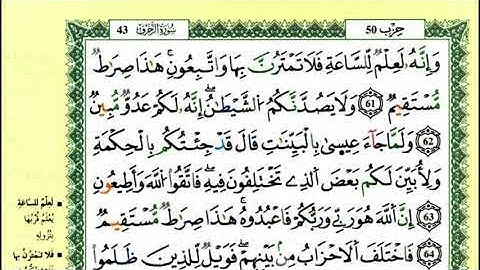 43 سُورَةُ الزُّخْرُفِ
حِزْب 50
وَإِنَّهُۥ لَعِلْمٌ لِّلسَّاعَةِ فَلَا تَمْتَرُنَّ بِهَا وَاتَّبِعُونِ هَٰذَا صِرَٰطٌ
مُّسْتَقِيمٌ 61 وَلَا يَصُدَّنَّكُمُ الشَّيْطَٰنُ إِنَّهُۥ لَكُمْ عَدُوٌّ مُّبِينٌ
62 وَلَمَّا جَآءَ عِيسَىٰ بِالْبَيِّنَٰتِ قَالَ قَدْ جِئْتُكُم بِالْحِكْمَةِ
وَلِأُبَيِّنَ لَكُم بَعْضَ الَّذِے تَخْتَلِفُونَ فِيهِ فَاتَّقُوا اللَّهَ وَأَطِيعُونِ
63 إِنَّ اللَّهَ هُوَ رَبِّي وَرَبُّكُمْ فَاعْبُدُوهُ هَٰذَا صِرَٰطٌ مُّسْتَقِيمٌ
64 فَاخْتَلَفَ الْأَحْزَابُ مِنۢ بَيْنِهِمْ فَوَيْلٌ لِّلَّذِينَ ظَلَمُوا
لَعِلْمٌ لِلسَّاعَةِ
يُعْلَمُ قُرْبُهَا
بِنُزُولِهِ
فَلَا تَمْتَرُنَّ بِهَا